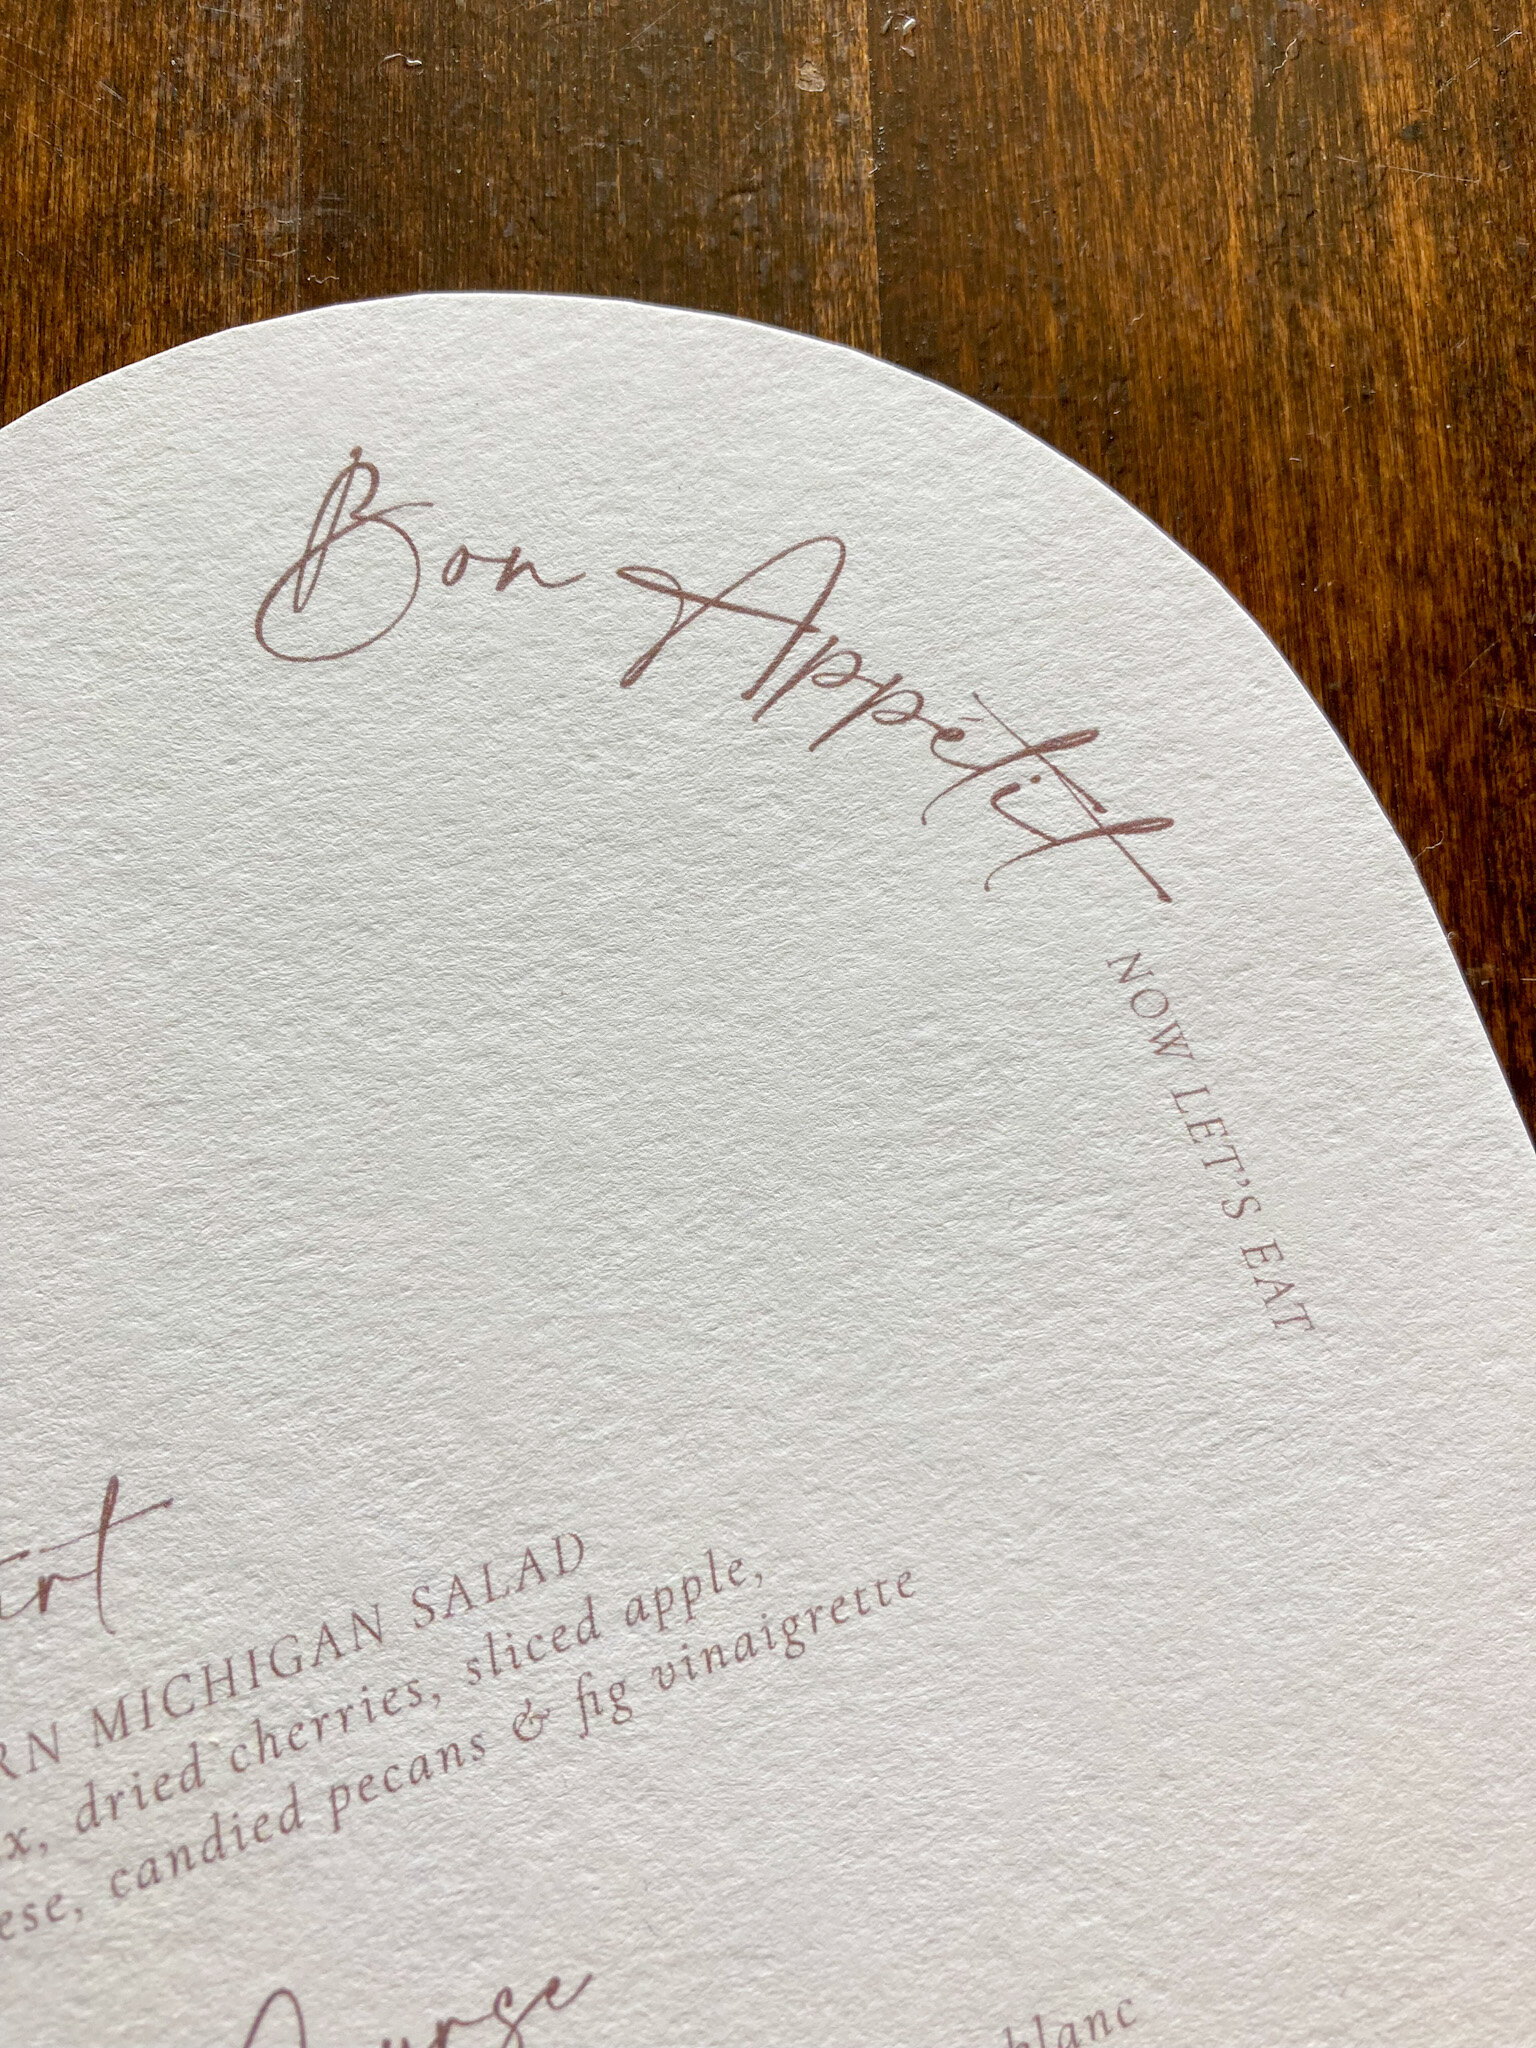 Bon Appétit
NOW LET'S EAT
MICHIGAN SALAD
dried cherries, sliced apple,
candied pecans & fig vinaigrette
blanc